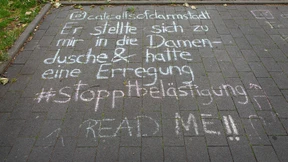 @catcallsofdarmstadt
Er stellte sich zu
mir in die Damen-
dusche & hatte
eine Erregung
#stopptbelästigung
READ ME!!